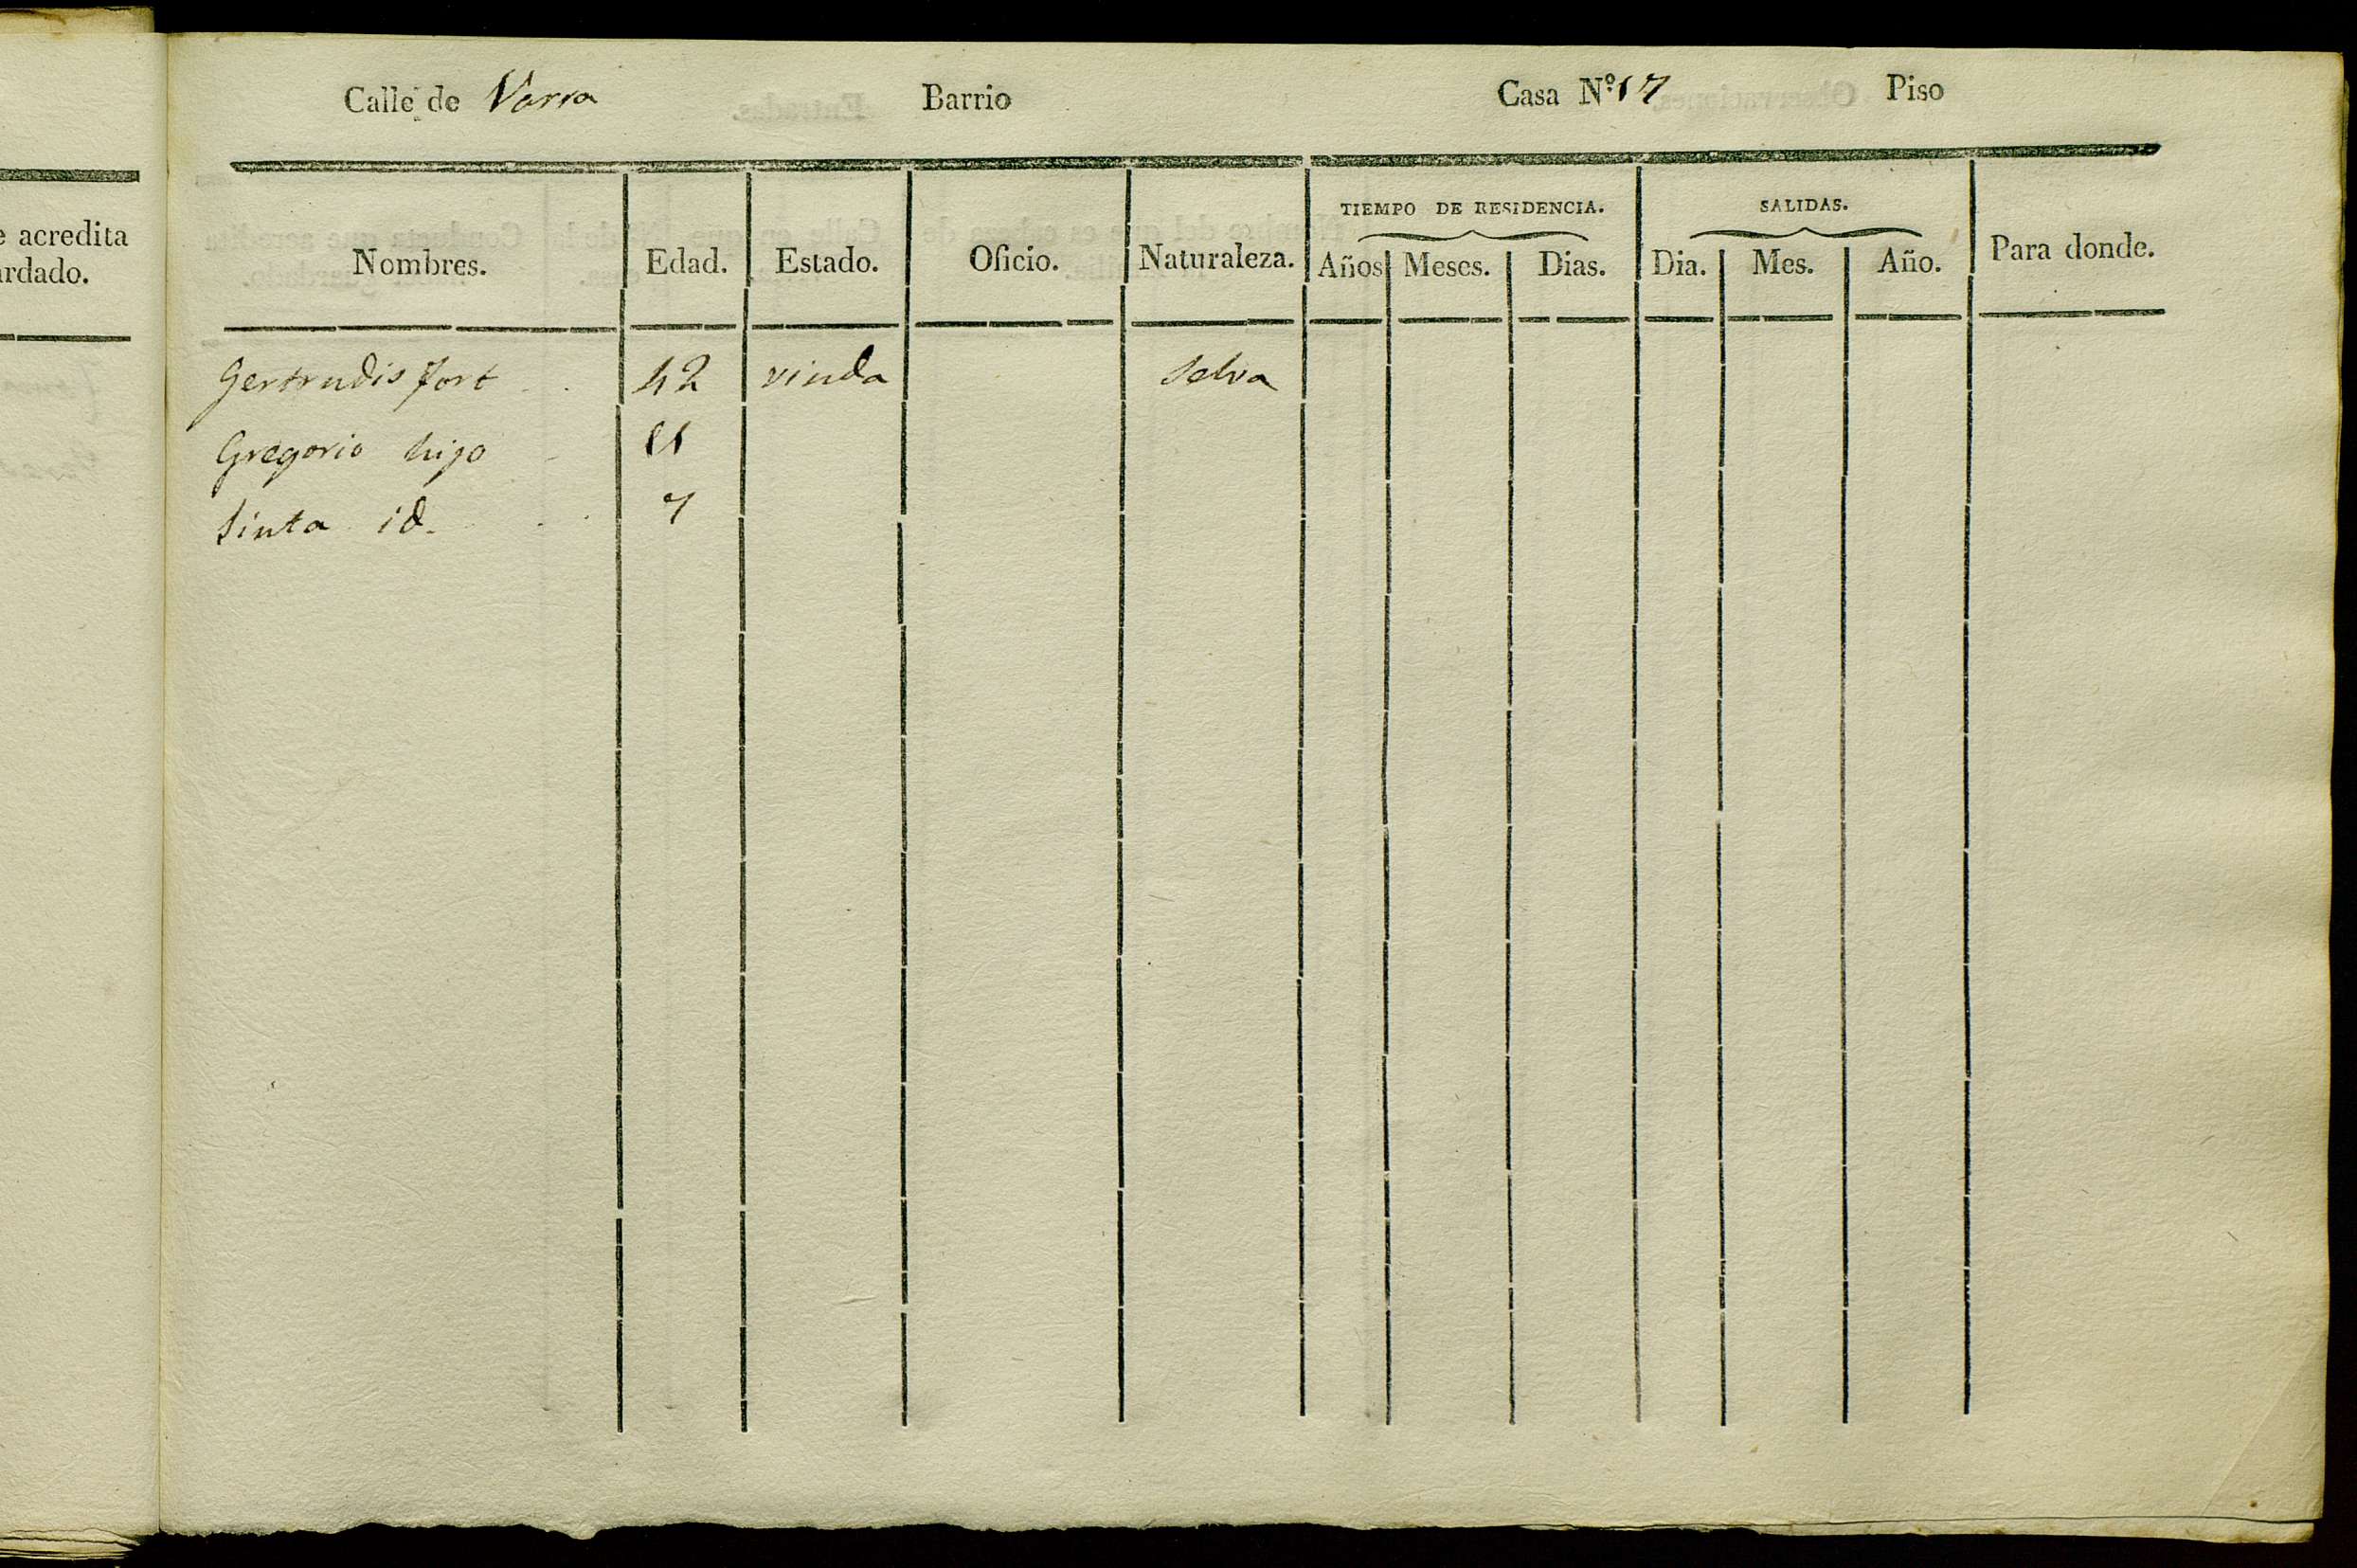 e acredita
ardado.
Calle de Varra Barrio Casa Nº 17 Piso
TIEMPO DE RESIDENCIA. SALIDAS.
Nombres. Edad. Estado. Oficio. Naturaleza. Años Meses. Dias. Dia. Mes. Año. Para donde.
Gertrudis Fort 42 viuda Selva
Gregorio hijo 11
Sinta id. 7